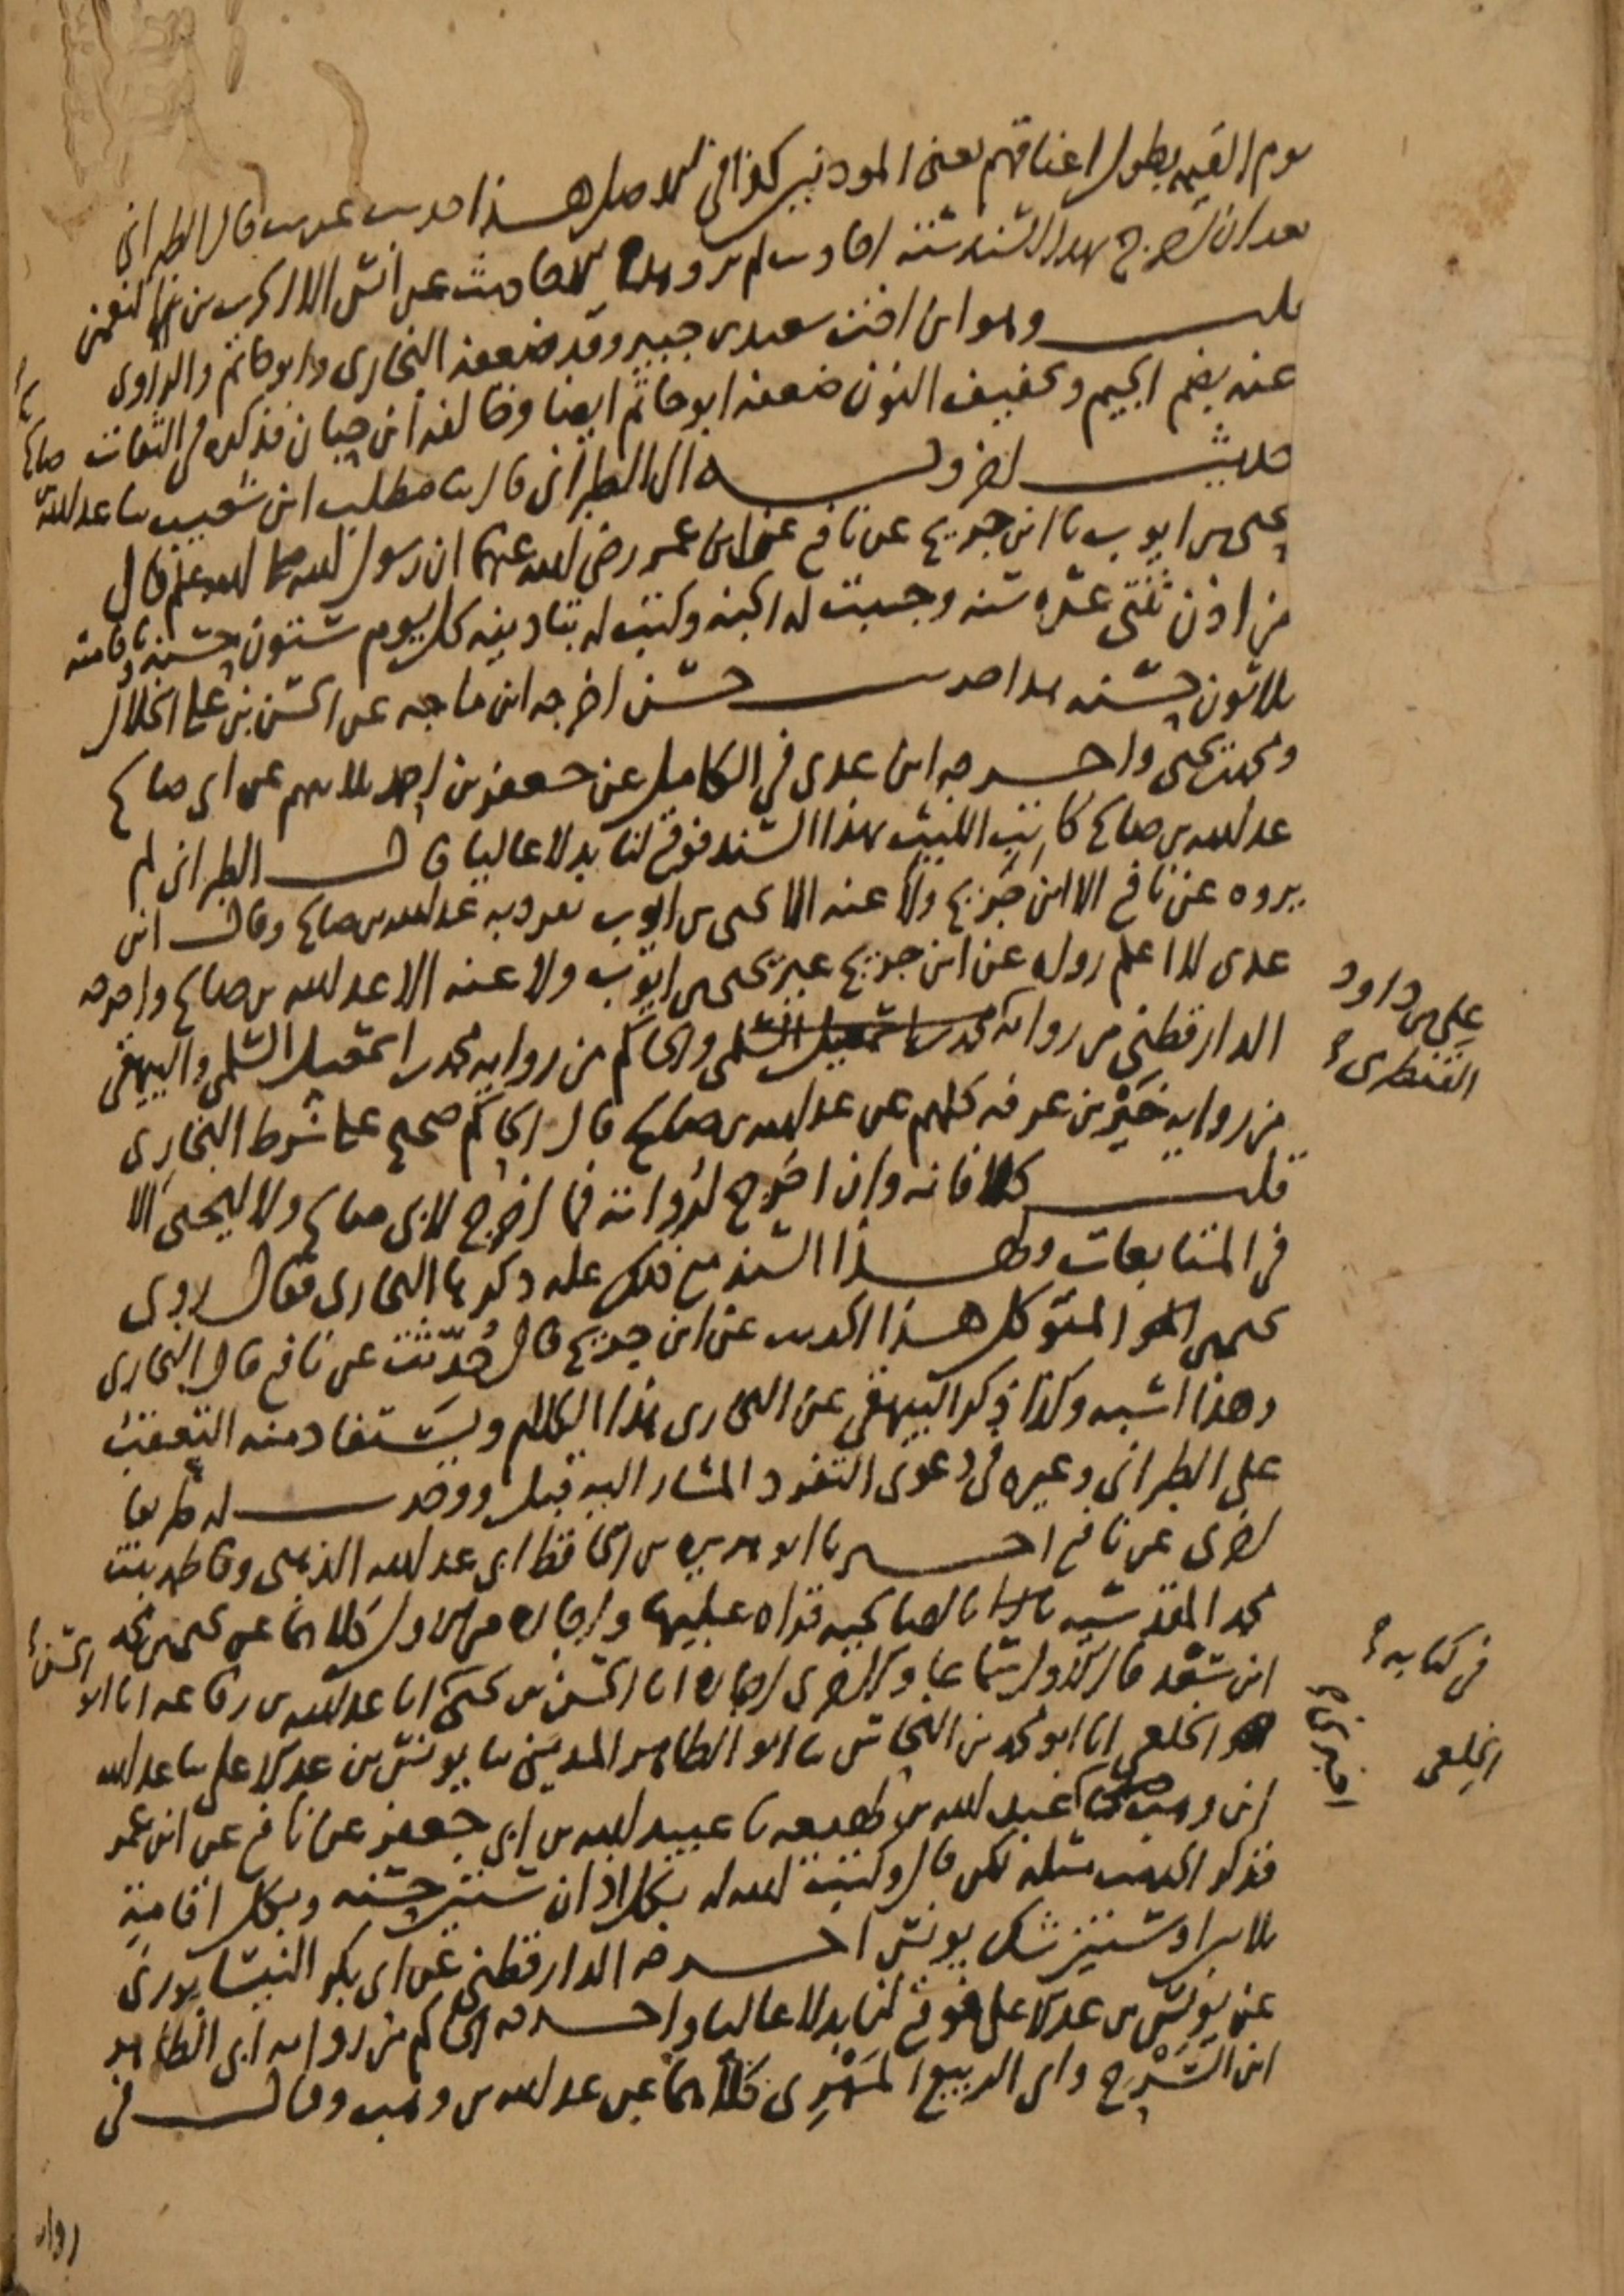 يوم القيمة بطول اعناقهم يعني المؤذنين كذا في الاصل هذا حديث غريب قال الطبراني
بعد ان اخرج بهذا السند ستة احاديث لم يرو هذه الاحاديث عن انس الا ابراهيم بن
قلت وهو ابن اخت سعيد بن جبير وقد ضعفه البخاري وابو حاتم والراوي
عنه بضم الجيم وتخفيف النون ضعفه ابو حاتم ايضا وخالفه ابن حبان فذكره في الثقات
حديث اخر وبه الى الطبراني قال ثنا مطلب ابن شعيب ثنا عبد الله بن صالح
يحيى بن ايوب ثنا ابن جريج عن نافع عن ابن عمر رضي الله عنهما ان رسول الله صلى الله عليه وسلم قال
من اذن ثنتي عشرة سنة وجبت له الجنة وكتب له بتاذينه كل يوم ستون حسنة وباقامته
ثلاثون حسنة هذا حديث حسن اخرجه ابن ماجه عن الحسن بن علي الخلال
ومحمد بن يحيى واخرجه ابن عدي في الكامل عن جعفر بن احمد ثلاثتهم عن ابي صالح
عبد الله بن صالح كاتب الليث بهذا السند فوقع لنا بدلا عاليا قال الطبراني لم
يروه عن نافع الا ابن جريج ولا عنه الا يحيى بن ايوب تفرد به عبد الله بن صالح وقال ابن
عدي لا اعلم رواه عن ابن جريج غير يحيى بن ايوب ولا عنه الا عبد الله بن صالح واخرجه
الدارقطني من رواية محمد بن اسمعيل السلمي والحاكم من رواية محمد بن اسمعيل السلمي والبيهقي
علي بن داود
القنطري
من رواية خير بن عرفة كلهم عن عبد الله بن صالح قال الحاكم صحيح على شرط البخاري
قلت كلا فانه وان اخرج لرواته فما اخرج لابي صالح ولا ليحيى الا
في المتابعات ولهذا السند مع ذلك علة ذكرها البخاري فقال روى
يحيى بن المتوكل هذا الحديث عن ابن جريج قال حُدّثت عن نافع قال البخاري
وهذا اشبه وكذا ذكر البيهقي عن البخاري هذا الكلام ويستفاد منه التعقب
على الطبراني وغيره في دعوى التفرد المشار اليه قبل ووجدت له طريقا
اخرى عن نافع اخبرنا ابو هريرة بن الحافظ ابي عبد الله الذهبي وفاطمة بنت
محمد المقدسية ثم الصالحية قراءه عليها واجازة من الاول كلاهما عن يحيى بن محمد
في كتابه
ابن سعد قال الاول سماعا وقالت الاخرى اجازة انا الحسن بن يحيى انا عبد الله بن رفاعه انا ابو الحسن
الخلعي انا ابو محمد بن النحاس ثنا ابو الطاهر المديني ثنا يونس بن عبد الاعلى ثنا عبد الله
الخلعي
ابن وهب اخبرني عبد الله بن لهيعه ثنا عبيد الله بن ابي جعفر عن نافع عن ابن عمر
فذكر الحديث مثله لكن قال وكتب الله له بكل اذان ستين حسنة وبكل اقامة
ثلاثين او ستين شك يونس اخرجه الدارقطني عن ابي بكر النيسابوري
عن يونس بن عبد الاعلى فوقع لنا بدلا عاليا واخرجه الحاكم من رواية ابي الطاهر
ابن السَّرْح وابي الربيع المَهْرِي كلاهما عن عبد الله بن وهب وقال في